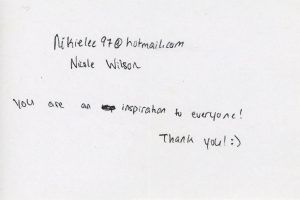 Nikielee97@hotmail.com
Nicole Wilson
You are an inspiration to everyone!
Thank you! :)